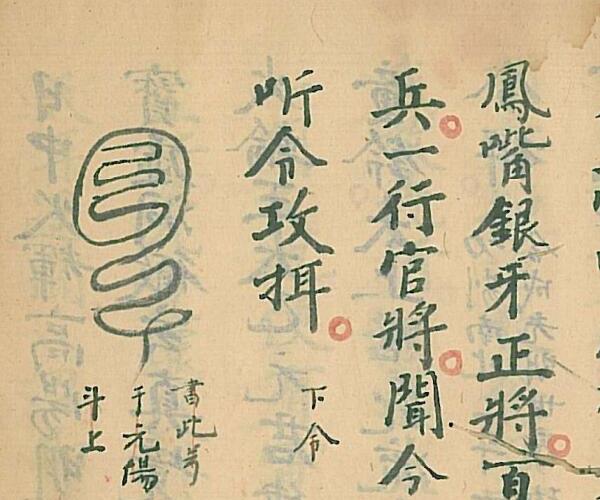 鳳嘴銀牙正將
兵一行官將聞令
听令攻揖
下令
書此号
于元陽
斗上